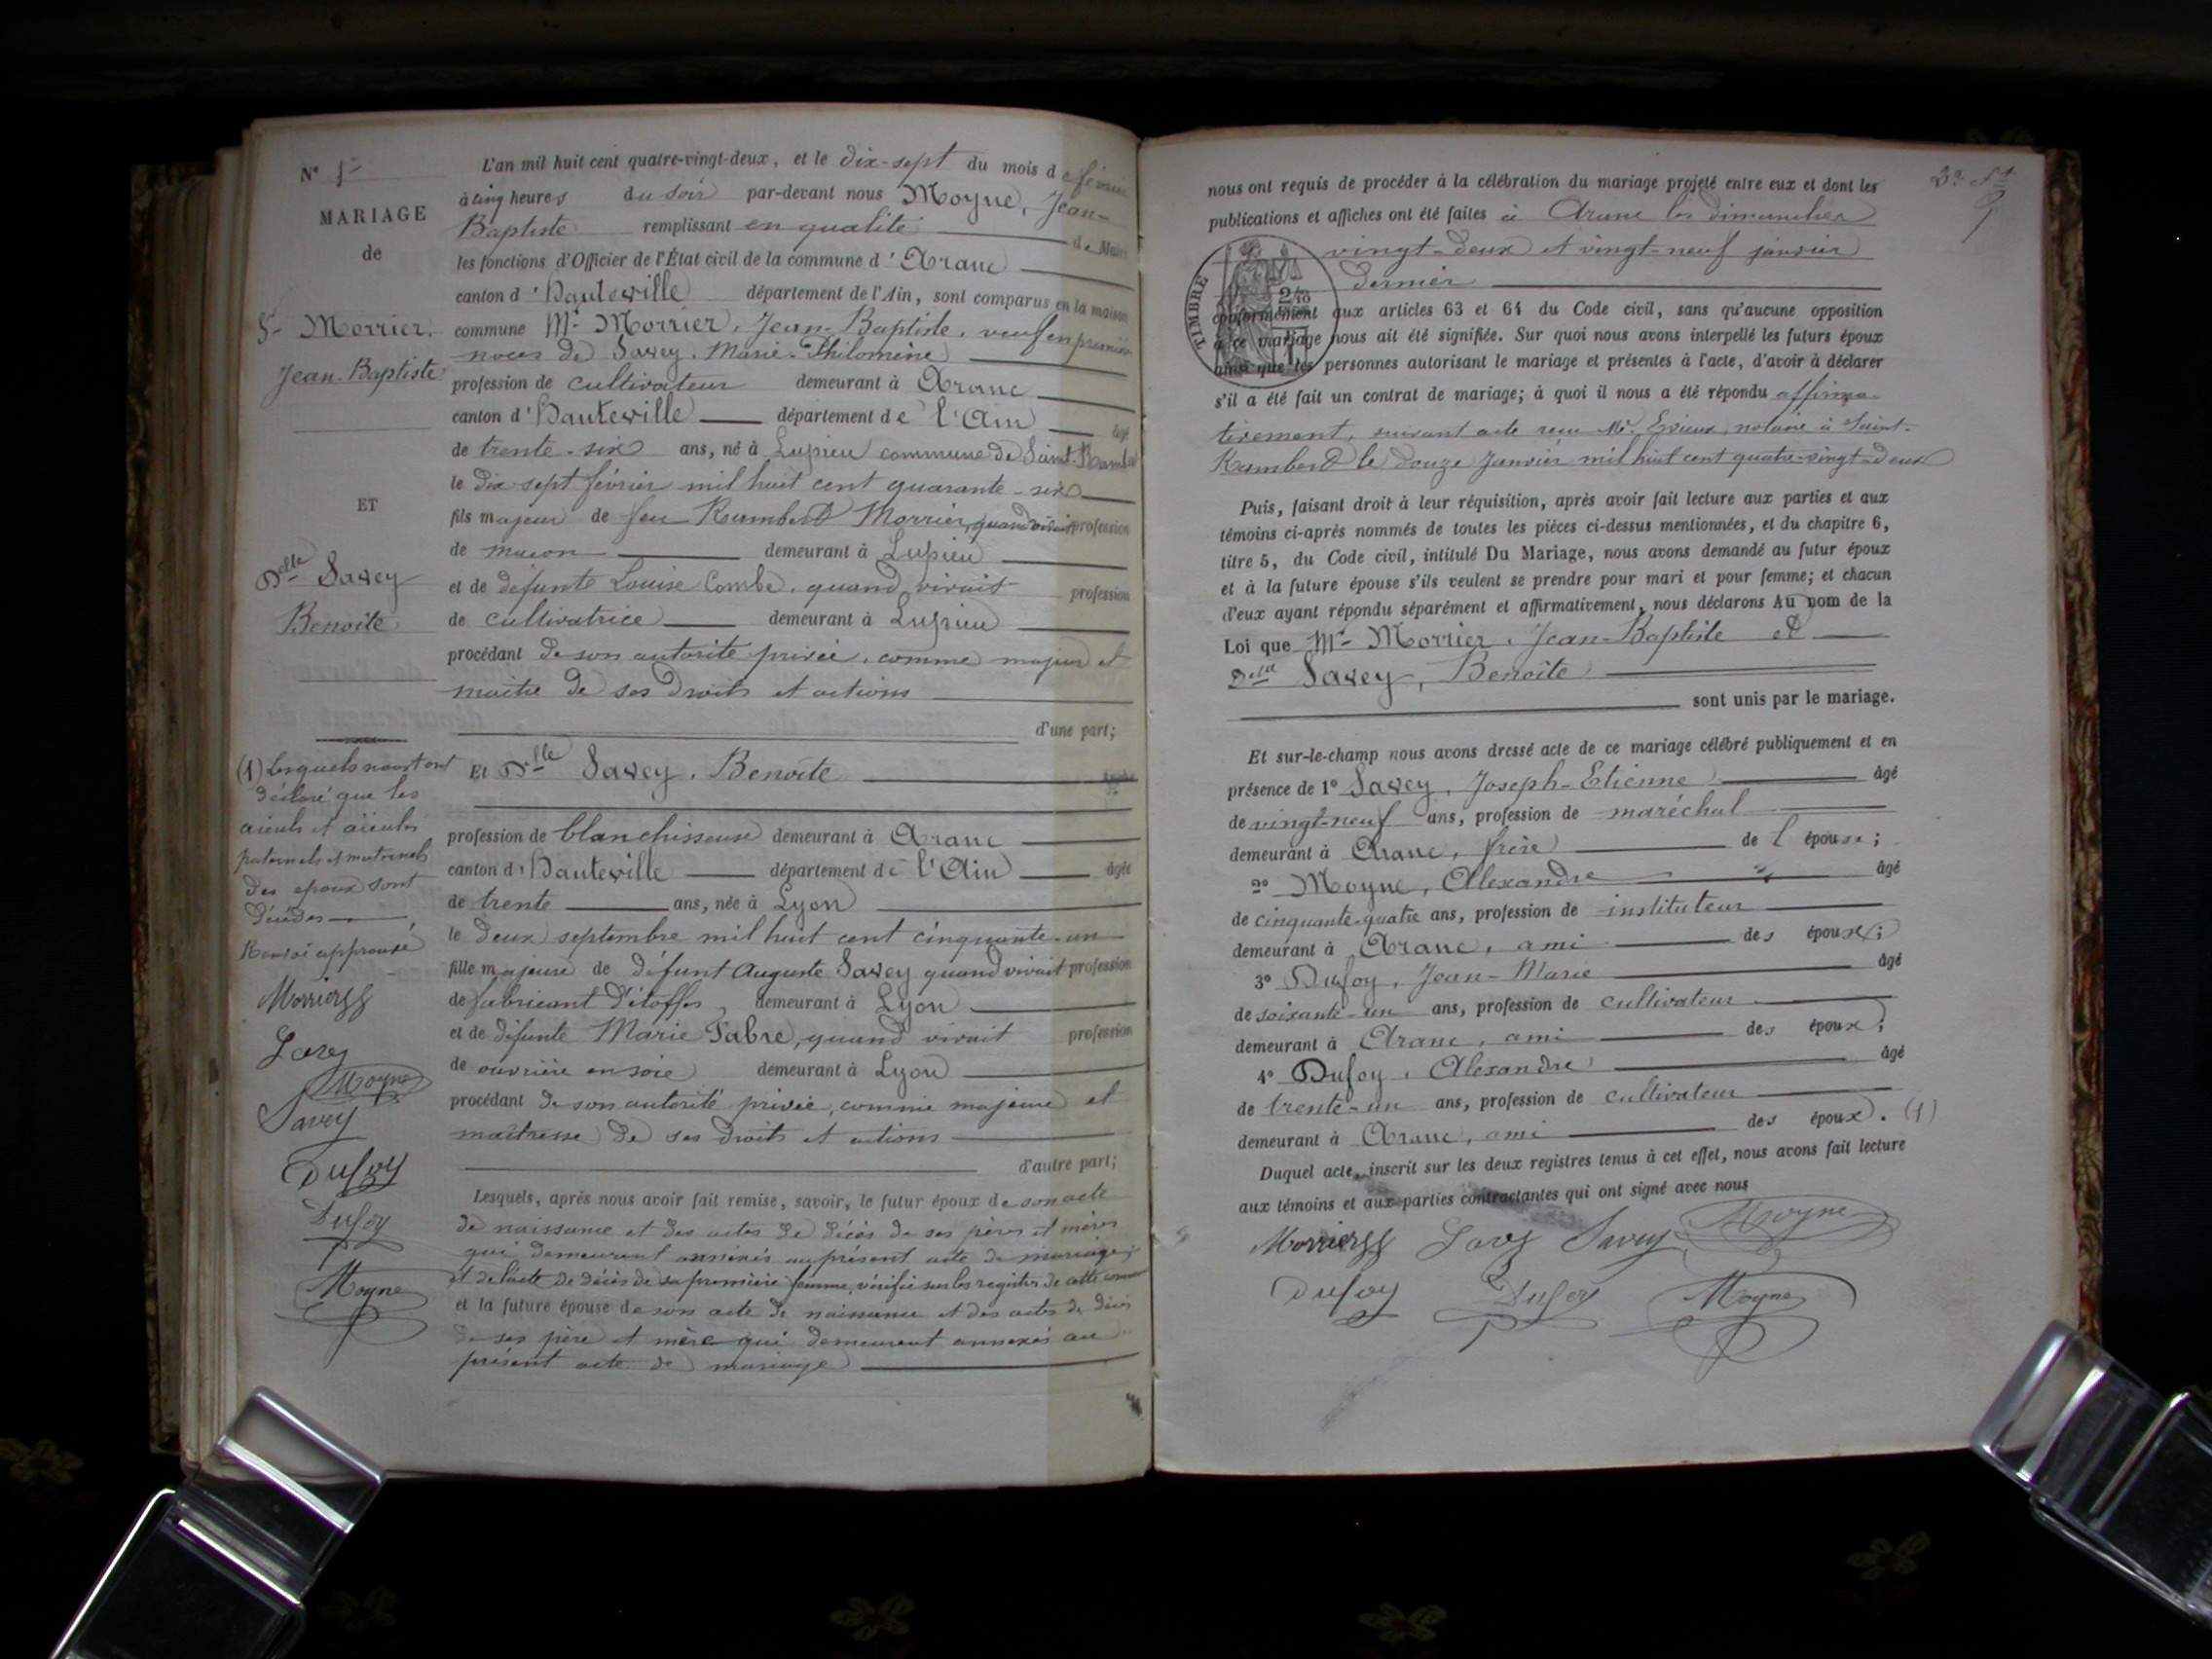 N° 1
MARIAGE
de
Sr Morrier
Jean-Baptiste
ET
Delle Savey
Benoite
(1) Lesquels nous ont
déclaré que les
aieuls et aieules
paternels et maternels
des époux sont
décédés
Renvoi approuvé
Morrier
Savey
Moyne
Savey
Dufoy
Dufoy
Moyne
L'an mil huit cent quatre-vingt-deux, et le dix-sept du mois de février
à cinq heures du soir par-devant nous Moyne, Jean-
Baptiste remplissant en qualité de Maire
les fonctions d'Officier de l'État civil de la commune d'Aranc
canton d'Hauteville département de l'Ain, sont comparus en la maison
commune Mr Morrier, Jean-Baptiste, veuf en premières
noces de Savey, Marie-Philomène
profession de cultivateur demeurant à Aranc
canton d'Hauteville département de l'Ain âgé
de trente-six ans, né à Lupieu commune de Saint-Rambert
le dix sept février mil huit cent quarante-six
fils majeur de feu Rambert Morrier, quand vivait profession
de maçon demeurant à Lupieu
et de défunte Louise Combe, quand vivait profession
de cultivatrice demeurant à Lupieu
procédant de son autorité privée, comme majeur et
maître de ses droits et actions
d'une part;
Et Delle Savey, Benoite
profession de blanchisseuse demeurant à Aranc
canton d'Hauteville département de l'Ain âgée
de trente ans, née à Lyon
le deux septembre mil huit cent cinquante-un
fille majeure de défunt Auguste Savey quand vivait profession
de fabricant d'étoffes demeurant à Lyon
et de défunte Marie Fabre, quand vivait profession
de ouvrière en soie demeurant à Lyon
procédant de son autorité privée, comme majeure et
maîtresse de ses droits et actions
d'autre part;
Lesquels, après nous avoir fait remise, savoir, le futur époux de son acte
de naissance et des actes de décès de ses père et mère
qui demeurent annexés au présent acte de mariage;
et de l'acte de décès de sa première femme, vérifié sur les registres de cette commune
et la future épouse de son acte de naissance et des actes de décès
de ses père et mère qui demeurent annexés au
présent acte de mariage
nous ont requis de procéder à la célébration du mariage projeté entre eux et dont les
publications et affiches ont été faites à Aranc les dimanches
vingt-deux et vingt-neuf janvier
dernier
TIMBRE
2/10
conformément aux articles 63 et 64 du Code civil, sans qu'aucune opposition
à ce mariage nous ait été signifiée. Sur quoi nous avons interpellé les futurs époux
ainsi que les personnes autorisant le mariage et présentes à l'acte, d'avoir à déclarer
s'il a été fait un contrat de mariage; à quoi il nous a été répondu affirma-
tivement, suivant acte reçu Me notaire à Saint-
Rambert le douze Janvier mil huit cent quatre-vingt-deux
Puis, faisant droit à leur réquisition, après avoir fait lecture aux parties et aux
témoins ci-après nommés de toutes les pièces ci-dessus mentionnées, et du chapitre 6,
titre 5, du Code civil, intitulé Du Mariage, nous avons demandé au futur époux
et à la future épouse s'ils veulent se prendre pour mari et pour femme; et chacun
d'eux ayant répondu séparément et affirmativement, nous déclarons Au nom de la
Loi que Mr Morrier, Jean-Baptiste et
Delle Savey, Benoite
sont unis par le mariage.
Et sur-le-champ nous avons dressé acte de ce mariage célébré publiquement et en
présence de 1° Savey, Joseph-Etienne âgé
de vingt-neuf ans, profession de maréchal
demeurant à Aranc, frère de l'épouse;
2° Moyne, Alexandre âgé
de cinquante-quatre ans, profession de instituteur
demeurant à Aranc, ami des époux;
3° Dufoy, Jean-Marie âgé
de soixante-un ans, profession de cultivateur
demeurant à Aranc, ami des époux;
4° Dufoy, Alexandre âgé
de trente-un ans, profession de cultivateur
demeurant à Aranc, ami des époux. (1)
Duquel acte, inscrit sur les deux registres tenus à cet effet, nous avons fait lecture
aux témoins et aux parties contractantes qui ont signé avec nous
Morrier Savey Savey Moyne
Dufoy Dufoy Moyne